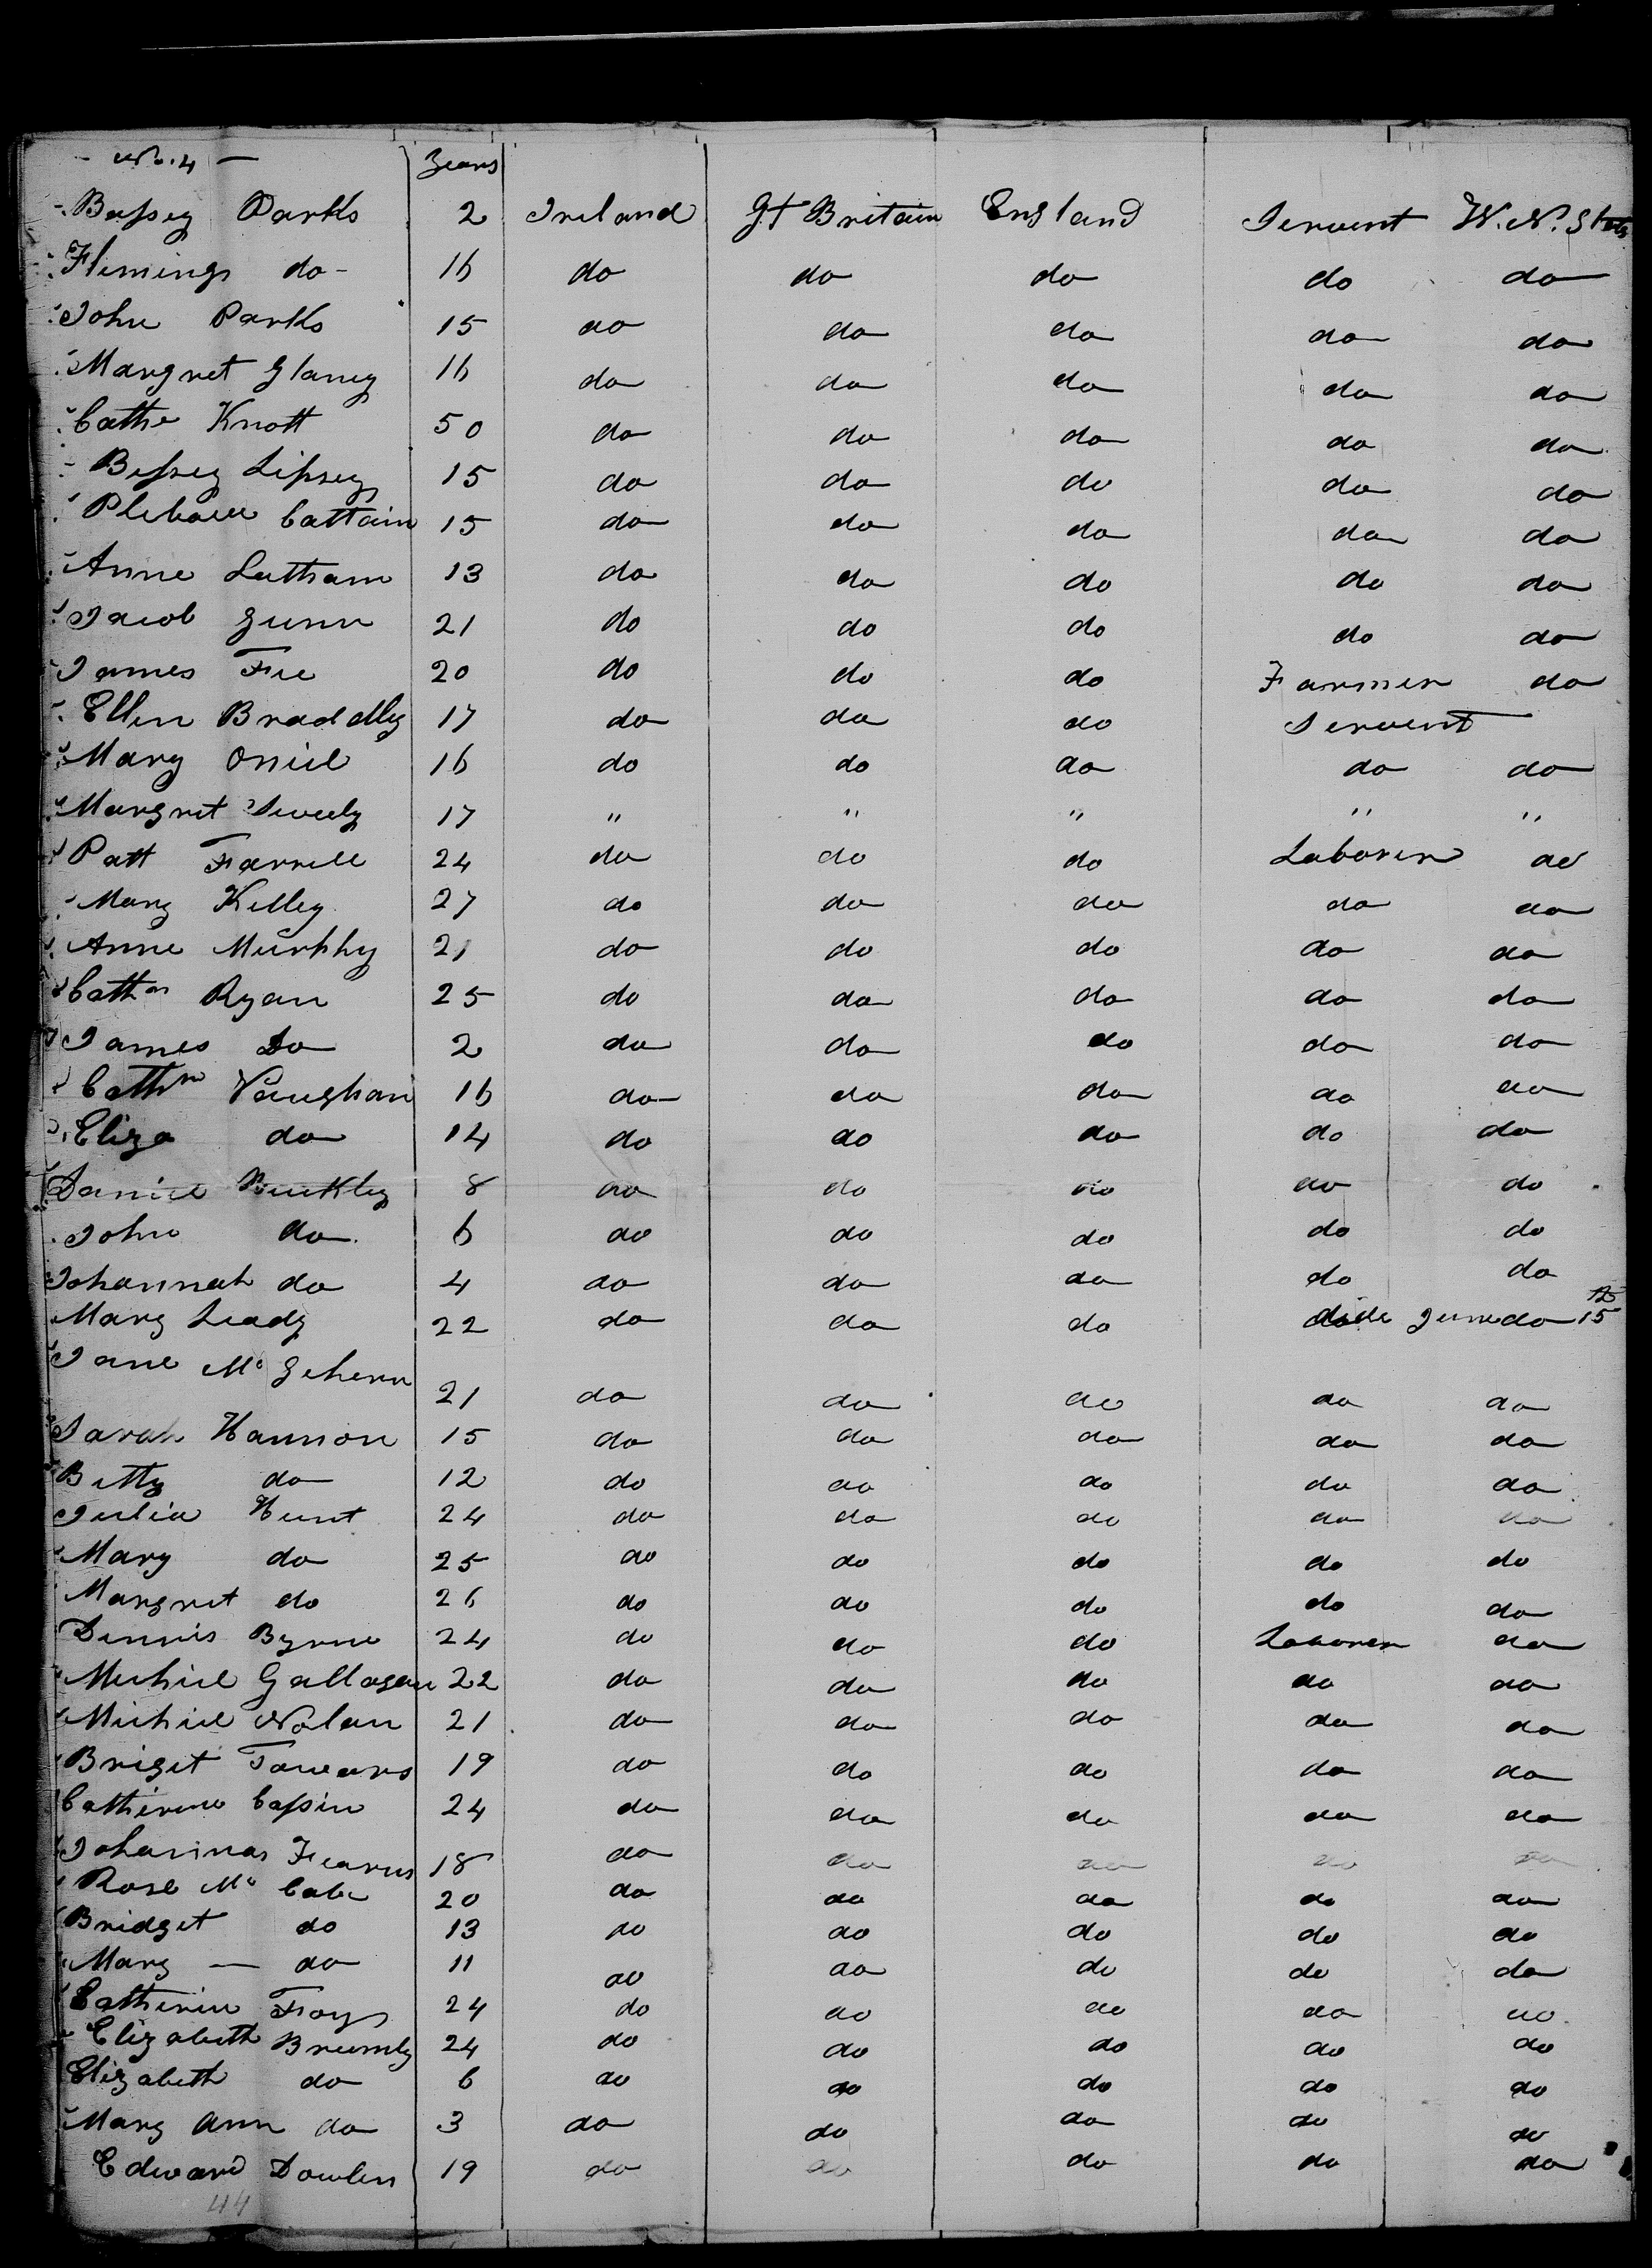 No. 4 — Years
Bessey Parks 2 Ireland Gt Britain England Servent W. N. Stats
Flemings do - 16 do do do do do
John Parks 15 do do do do do
Margret Glaney 16 do do do do do
Cathe Knott 50 do do do do do
Bessey Lipsey 15 do do do do do
Cattain 15 do do do do do
Anne Latham 13 do do do do do
Jacob Gunn 21 do do do do do
James Fee 20 do do do Farmer do
Ellen Braddlly 17 do do do Servent
Mary Oniel 16 do do do do do
Margret 17 " " " " "
Patt Farrell 24 do do do Laborer do
Mary Kelley 27 do do do do do
Anne Murphy 21 do do do do do
Cathn Ryan 25 do do do do do
James Do 2 do do do do do
Cathn Vaughan 16 do do do do do
Eliza do 14 do do do do do
Daniel Buckley 8 do do do do do
John do 6 do do do do do
Johannah do 4 do do do do do
Mary Leady 22 do do do dide June do 15
Jane Mc Gehern 21 do do do do do
Sarah Hannon 15 do do do do do
Betty do 12 do do do do do
Julia Hunt 24 do do do do do
Mary do 25 do do do do do
Margret do 26 do do do do do
Dennis Byrne 24 do do do Laborer do
Michiel Gallagau 22 do do do do do
Michiel Nolan 21 do do do do do
Briget Towears 19 do do do do do
Catherine Cassin 24 do do do do do
Johannas Fearns 18 do do do do do
Rose Mc Cabe 20 do do do do do
Bridget do 13 do do do do do
Mary — do 11 do do do do do
Catherin Foys 24 do do do do do
Elizabeth Brumly 24 do do do do do
Elizabeth do 6 do do do do do
Mary Ann do 3 do do do do do
Edward Dowlen 19 do do do do do
44